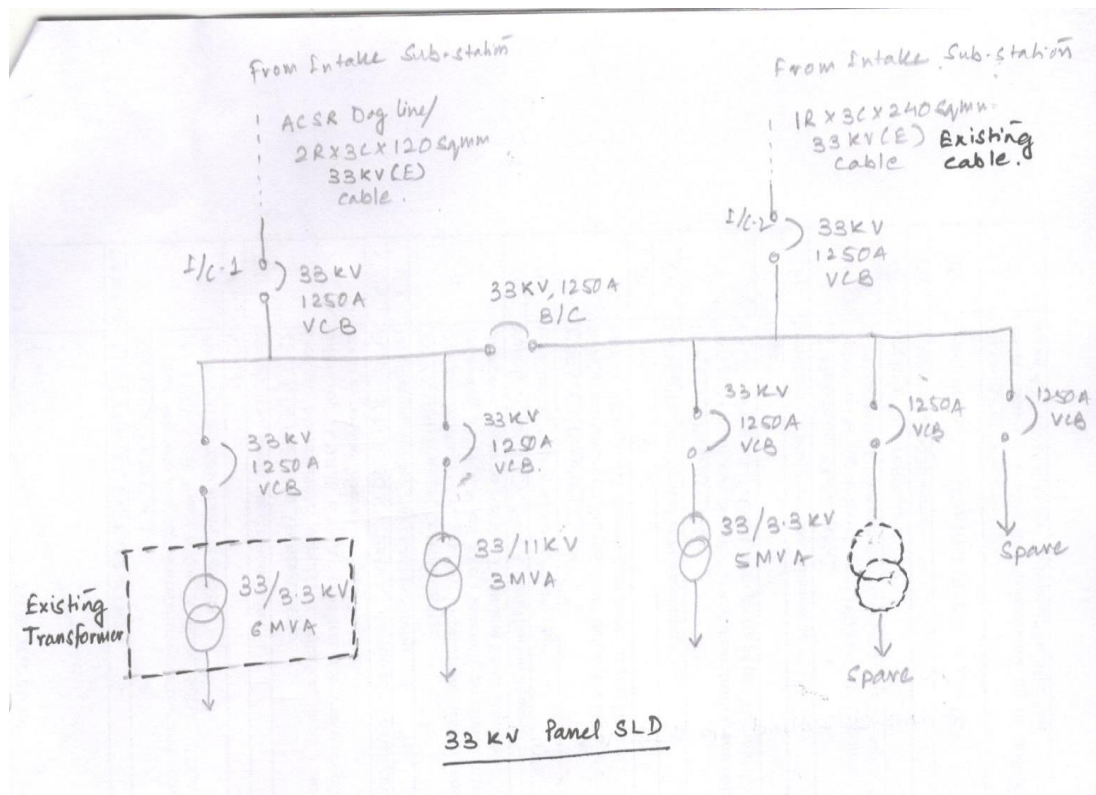 From Intake Sub-station
ACSR Dog line/
2R x 3C x 120 Sqmm
33 KV (E)
cable.
From Intake Sub-station
1R x 3C x 240 Sqmm
33 KV (E) Existing
cable cable.
I/C-1
33 KV
1250A
VCB
33 KV, 1250A
B/C
I/C-2
33 KV
1250A
VCB
33 KV
1250 A
VCB
33 KV
1250A
VCB.
33 KV
1250A
VCB
1250A
VCB
1250A
VCB
Existing
Transformer
33/3.3 KV
6 MVA
33/11 KV
3 MVA
33/3.3 KV
5 MVA
Spare
Spare
33 KV Panel SLD